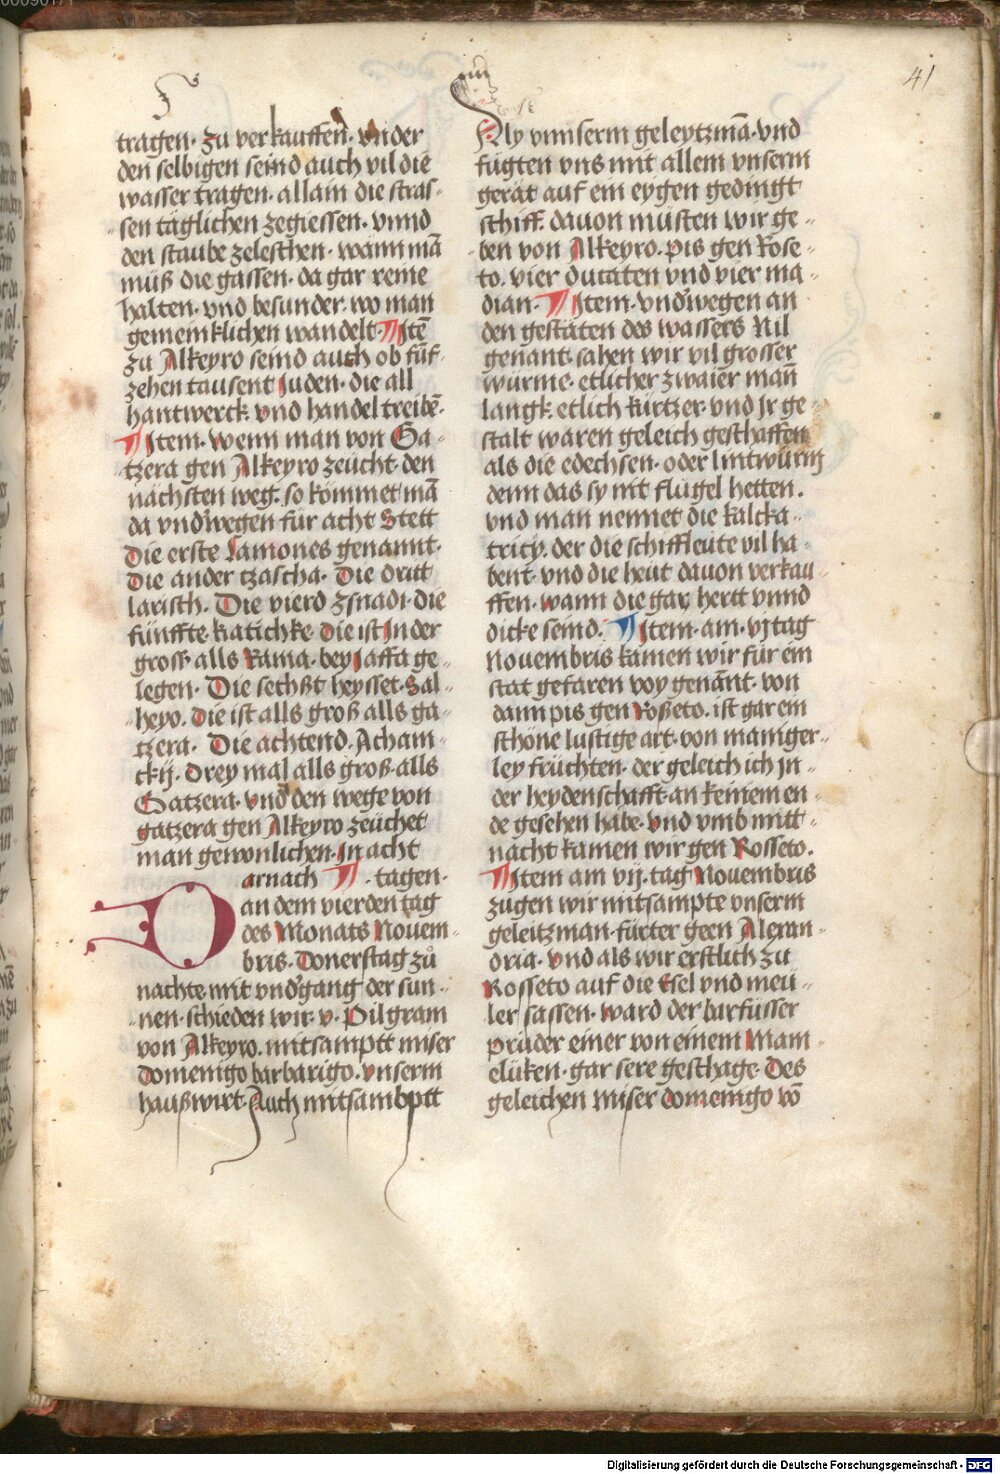 41
tragen· zu verkauffen̄· vnder
den selbigen seind auch vil die
wasser tragen· allain die stras-
sen täglichen zegiessen· vnnd
den staube zeleschen· wann mā
müß die gassen· da gar reine
halten· vnd besunder· wo man
gemeinklichen wandelt· ¶ Itē
zu Alkeyro seind auch ob fünf-
zehen tausent Juden· die all
hantwerck vnd handel treibē·
¶ Item· wenn man von Ga-
tzera gen Alkeyro zeücht· den
nächsten weg· so kommet mā
da vndwegen für acht Stett
Die erste Lamones genannt·
Die ander tzascha· Die dritt
larisch· Die vierd zsnadi· die
fünffte katichke· die ist In der
gross· alls Rama· bey Jaffa ge-
legen· Die sechßt heysset· Sal-
heyo· die ist alls groß alls ga-
tzera· Die achtend· Acham-
ckij· Drey mal alls groß· alls
Gatzera· vnd den wege von
gatzera gen Alkeyro zeüchet
man gewonlichen· In acht
Darnach ¶ · tagen·
an dem vierden tag
des Monats Nouem-
bris· Donerstag zů
nachte· mit vndgang der sun-
nen· schieden wir· v· Pilgram
von Alkeyro· mitsamptt miser
Domenigo barbarigo· vnserm
haußwirt· Auch mitsambptt
Aly vnnserm geleytzmā· vnd
fügten vns mit allem vnserm
gerät auf ein eygen gedingt
schiff· dauon müsten wir ge-
ben von Alkeyro· pis gen Rose-
to· vier ducaten vnd vier ma-
dian· ¶ Item· vndwegen an
den gestäten des wassers Nil
genant· sahen wir vil grosser
würme· etlicher zwaier man̄
langk· etlich kürtzer· vnd Jr ge-
stalt waren geleich geschaffen
als die edechsen· oder lintwürm
denn das sy nit flügel hetten·
vnd man nennet die kalcka-
tricy· der die schiffleute vil ha-
bent· vnd die heüt dauon verkau-
ffen· wann die gar hertt vnnd
dicke seind· ¶ Item· am· vj tag
Nouembris kamen wir für ein
stat gefaren voy genānt· von
dann pis gen Roßeto· ist gar ein
schöne lustige art· von maniger-
ley früchten· der geleich ich jn-
der heydenschafft· an keinem en-
de gesehen habe· vnd vmb mitt-
nacht kamen wir gen Rosseto·
¶ Item am vij· tag Nouembris
zugen wir mitsampte vnserm
geleitzman· fürter geen Alexan-
dria· vnd als wir erstlich zu
Rosseto auf die Esel vnd meü-
ler sassen· ward der barfusser
prüder einer von einem Mam-
elüken· gar sere geschage· Des
geleichen miser domenigo vō
Digitalisierung gefördert durch die Deutsche Forschungsgemeinschaft - DFG